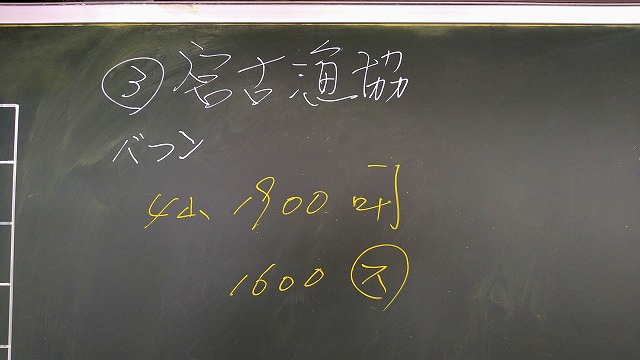 ③ 宮古漁協
バフン
1900
1600 ㋜